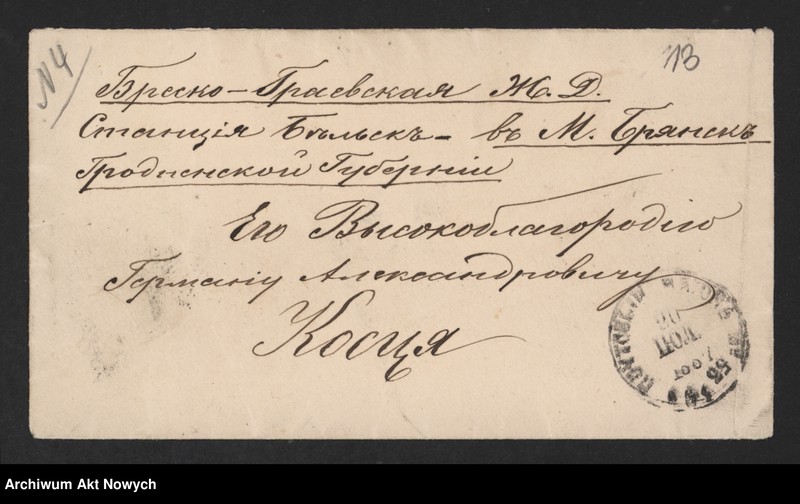 N4
113
Брестко-Граевская Ж. Д.
Станція Бѣльскъ - въ М. Брянскъ
Гродненской Губерніи
Его Высокоблагородію
Герману Александровичу
Косця
ПОЧТОВЫЙ ВАГОНЪ
20
ІЮЛ.
Archiwum Akt Nowych